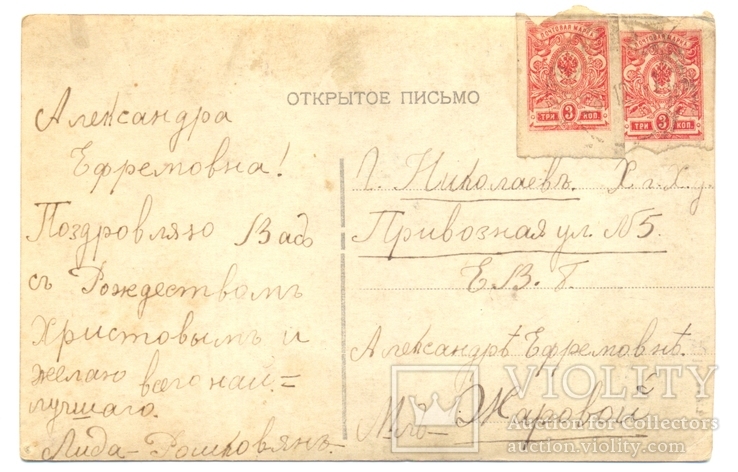 ОТКРЫТОЕ ПИСЬМО
ПОЧТОВАЯ МАРКА
3
ТРИ КОП.
ПОЧТОВАЯ МАРКА
3
ТРИ КОП.
Александра
Ефремовна!
Поздровляю Вас
съ Рождествомъ
Христовымъ и
желаю всего най=
лучшаго.
Лида
Г. Николаевъ.
Привозная ул. №5.
Е.В.Б.
Александрѣ Ефремовнѣ.
Жаровой
VIOLITY
Auction for Collectors
auction.violity.com